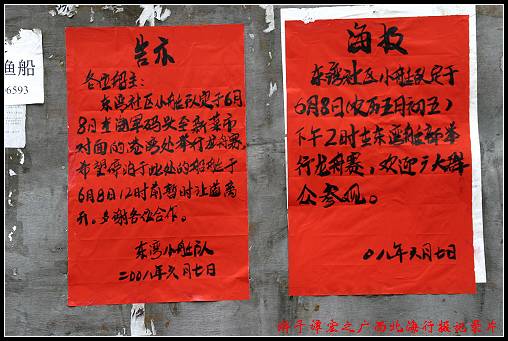 渔船
6593
告示
各位船主：
东湾社区小船队定于6月
8日在海军码头至新菜市
对面的海湾处举行龙舟赛
希望停泊于此处的船艇于
6月8日12时前暂时让道离
开。多谢各位合作。
东湾小船队
二00八年六月七日
海报
东湾社区小船队定于
6月8日（农历五月初五）
下午2时在东湾船部举
行龙舟赛，欢迎广大群
众参观。
0八年六月七日
游子谭宏之广西北海行摄记录片